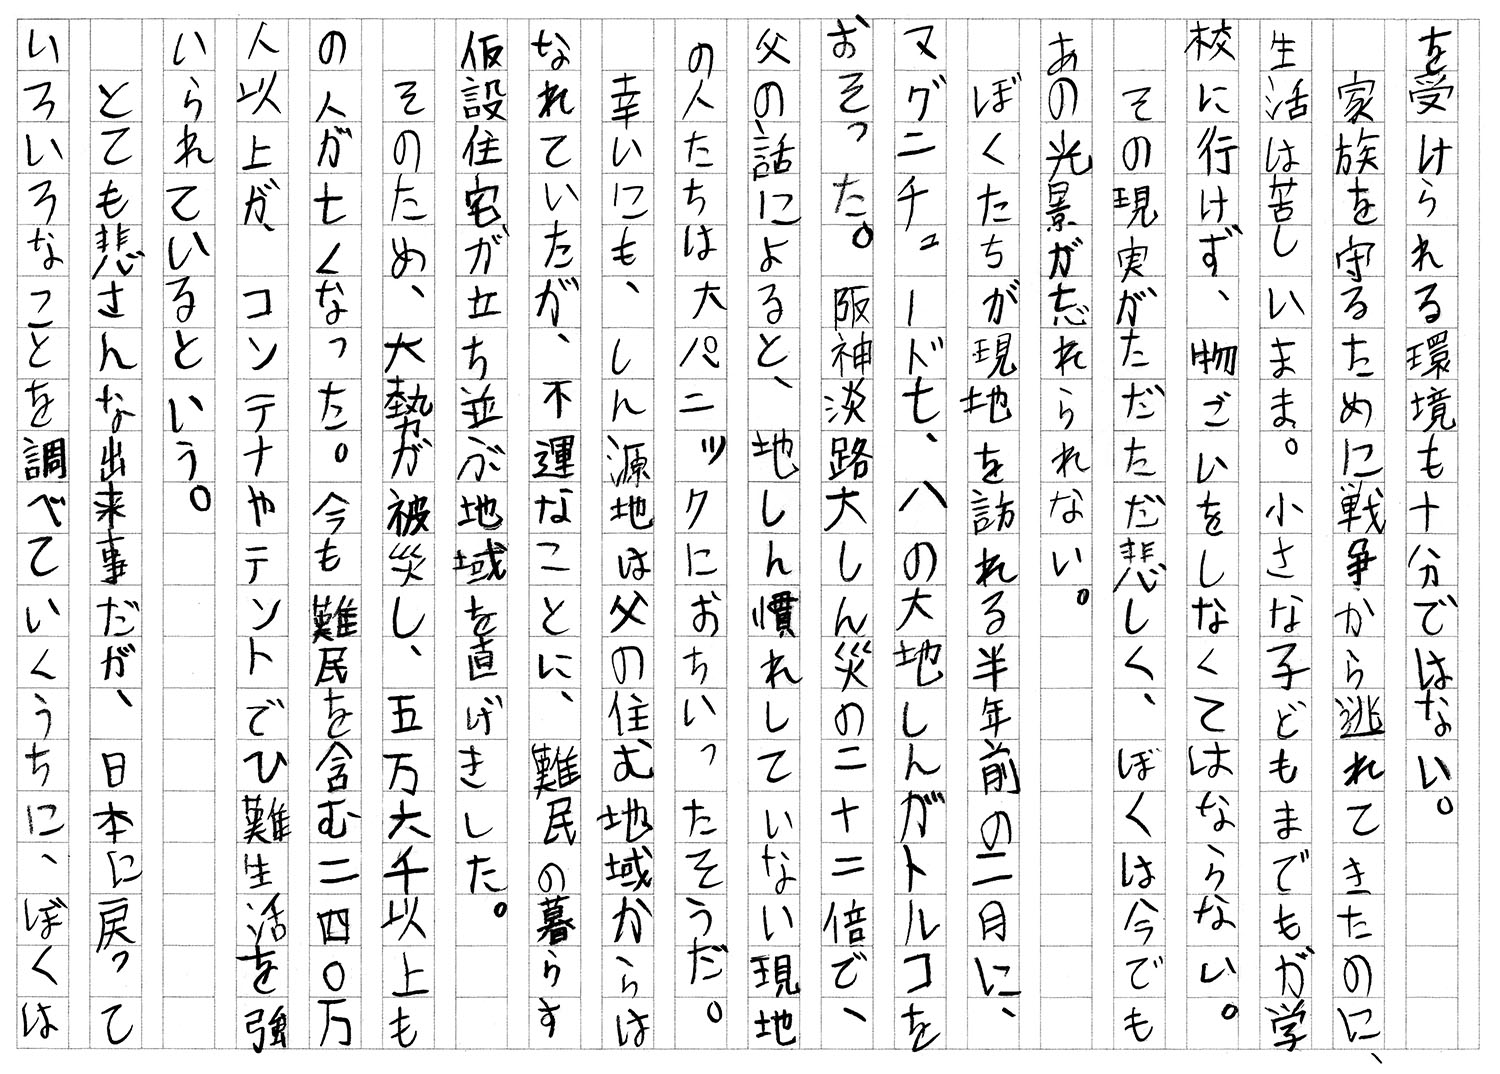 を受けられる環境も十分ではない。
家族を守るために戦争から逃れてきたのに、
生活は苦しいまま。小さな子どもまでもが学
校に行けず、物ごいをしなくてはならない。
その現実がただただ悲しく、ぼくは今でも
あの光景が忘れられない。
ぼくたちが現地を訪れる半年前の二月に、
マグニチュード七、八の大地しんがトルコを
おそった。阪神淡路大しん災の二十二倍で、
父の話によると、地しん慣れしていない現地
の人たちは大パニックにおちいったそうだ。
幸いにも、しん源地は父の住む地域からは
なれていたが、不運なことに、難民の暮らす
仮設住宅が立ち並ぶ地域を直げきした。
そのため、大勢が被災し、五万大千以上も
の人が七くなった。今も難民を含む二四〇万
人以上が、コンテナやテントでひ難生活を強
いられているという。
とても悲さんな出来事だが、日本に戻って
いろいろなことを調べていくうちに、ぼくは